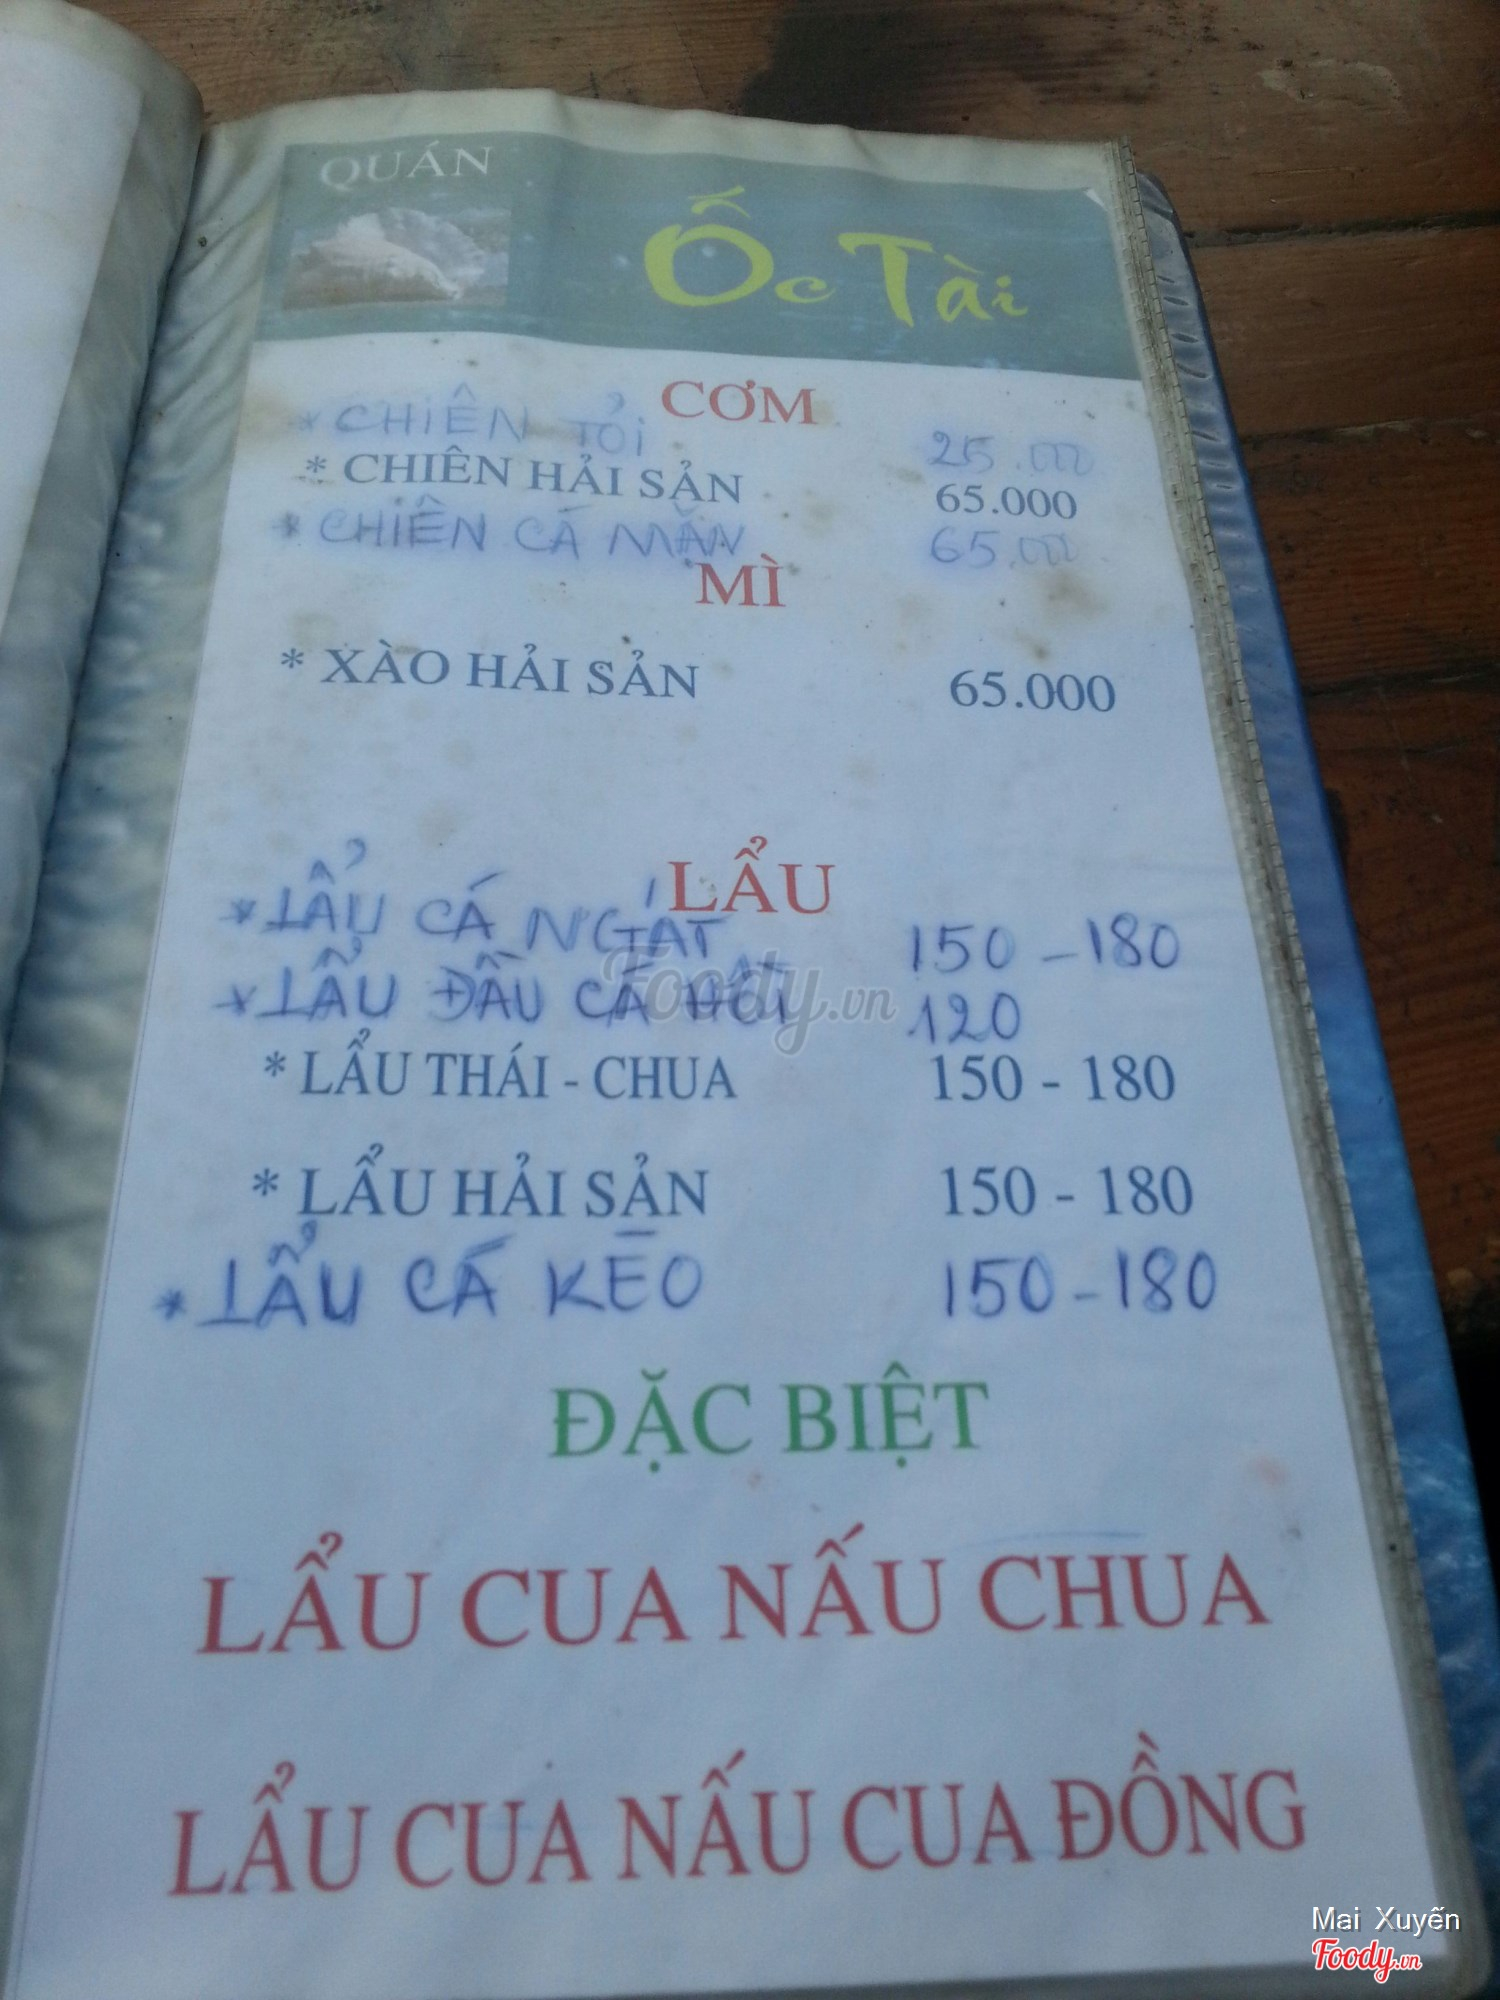 QUÁN
Ốc Tài
CƠM
* CHIÊN TỎI 25.000
* CHIÊN HẢI SẢN 65.000
* CHIÊN CÁ MẶN 65.000
MÌ
* XÀO HẢI SẢN 65.000
LẨU
* LẨU CÁ NGÁT 150 - 180
* LẨU ĐẦU CÁ HỒI 120
* LẨU THÁI - CHUA 150 - 180
* LẨU HẢI SẢN 150 - 180
* LẨU CÁ KÈO 150 - 180
ĐẶC BIỆT
LẨU CUA NẤU CHUA
LẨU CUA NẤU CUA ĐỒNG
Foody.vn
Mai Xuyến
Foody.vn